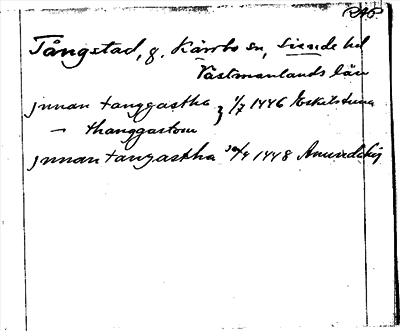 RAP.
Tångstad, g. Kärrbo sn, Siende hd
Västmanlands län
jnnan tanggastha } 1/7 1446 Eskilstuna
— thanggastom
jnnan tangastha 30/4 1448 Amundeby